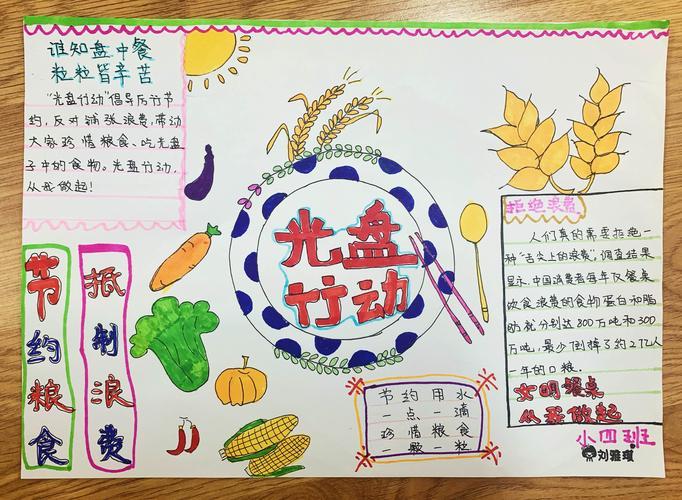 谁知盘中餐
粒粒皆辛苦
"光盘行动"倡导厉行节
约，反对铺张浪费，带动
大家珍惜粮食、吃光盘
子中的食物。光盘行动，
从我做起！
节约粮食
抵制浪费
光盘
行动
节约用水
一点一滴
珍惜粮食
一颗一粒
拒绝浪费
人们真的需要拒绝一
种"舌尖上的浪费"，调查结果
显示，中国消费者每年仅餐桌
饮食浪费的食物蛋白和脂
肪就分别达800万吨和300
万吨，最少倒掉了约2亿人
一年的口粮。
文明餐桌
从我做起
小四班
刘雅琪